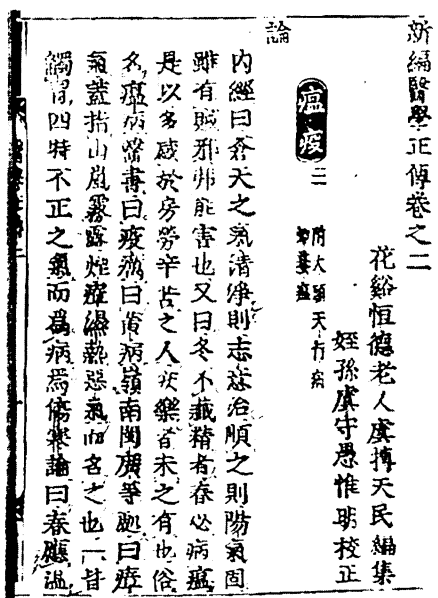 新編醫學正傳卷之二
花谿恒德老人虞摶天民編集
姪孫虞守愚惟明校正
瘟疫二
附大頭天行病
蟇瘟
論
內經曰蒼天之氣清淨則志意治順之則陽氣固
雖有賊邪弗能害也又曰冬不藏精者春必病瘟
是以多感於房勞辛苦之人安樂者未之有也俗
名瘟病醫書曰疫癘曰黃病嶺南閩廣等處曰瘴
氣蓋指山嵐霧露烟瘴濕熱惡氣而名之也一皆
觸冒四時不正之氣而爲病焉傷寒論曰春應溫